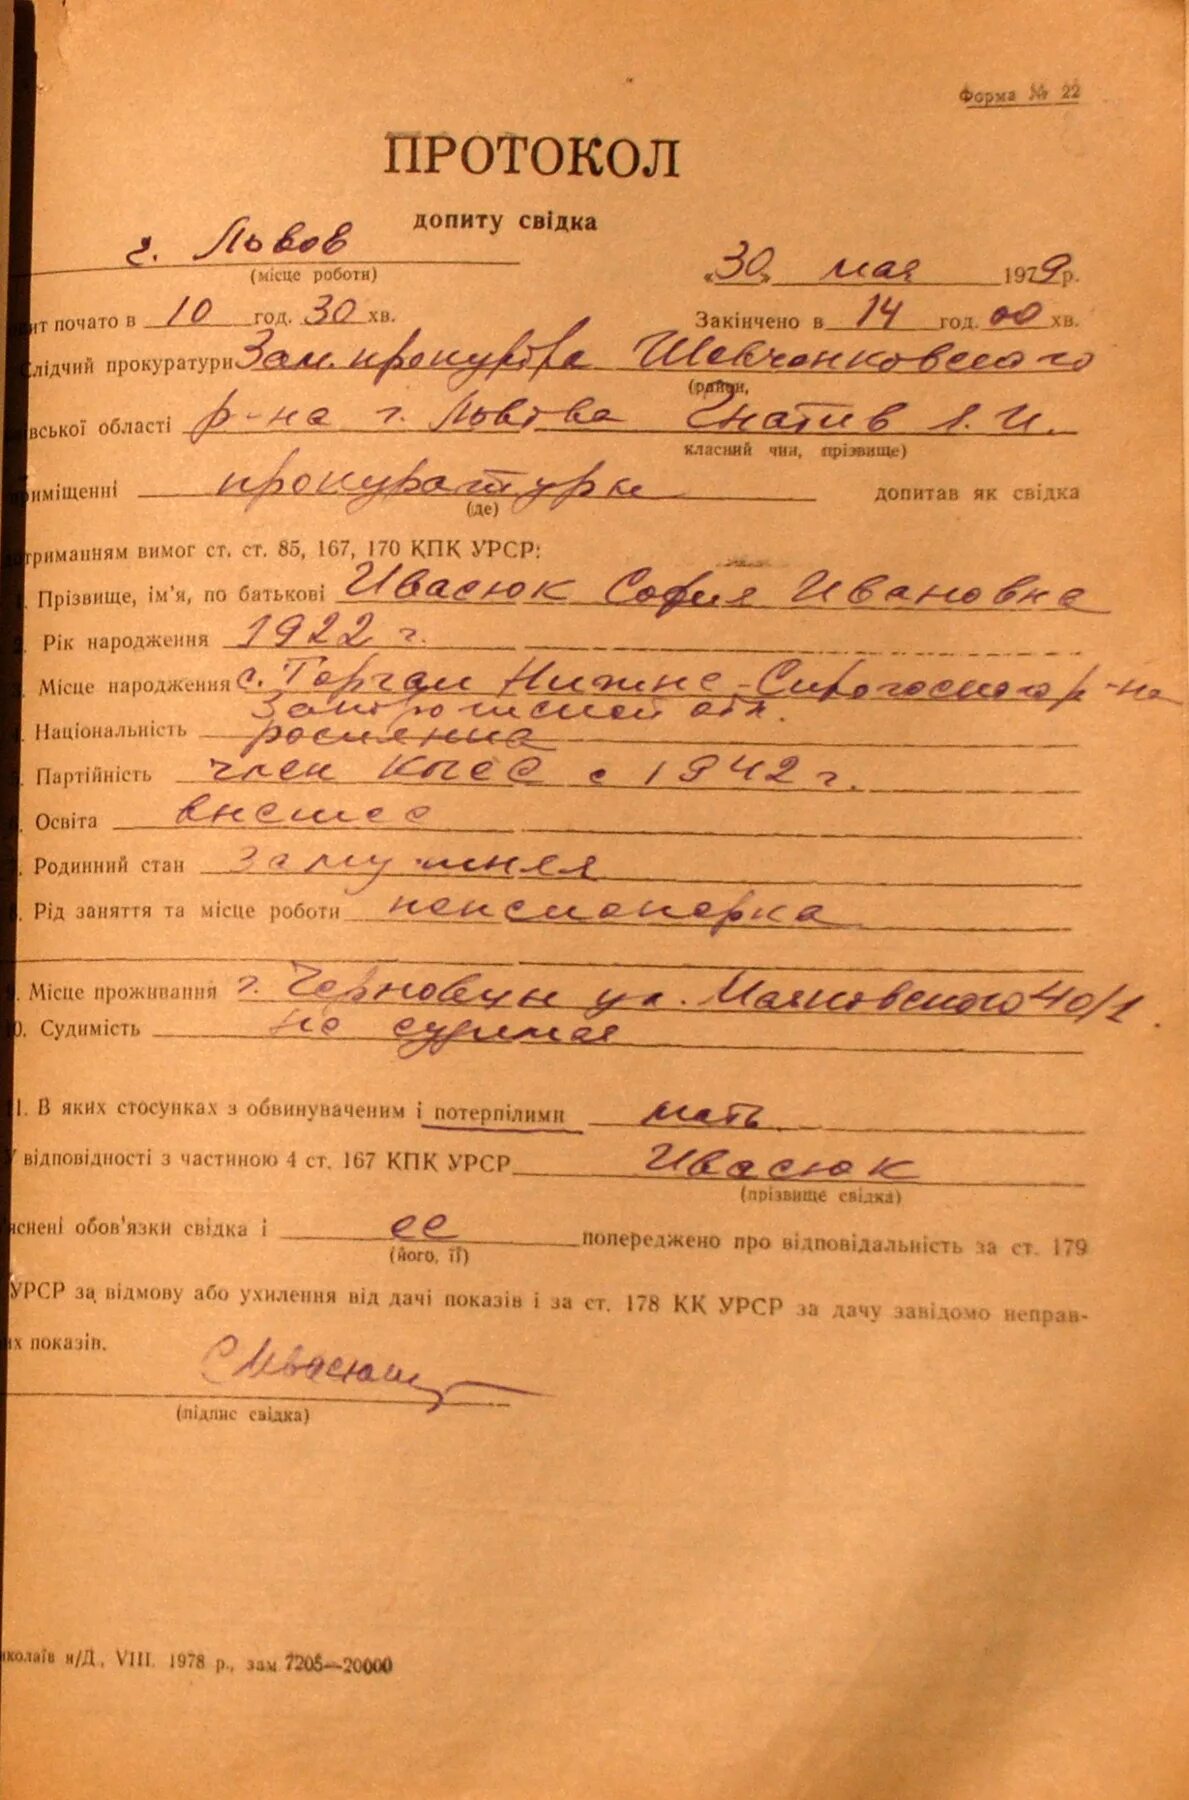 Форма № 22
ПРОТОКОЛ
допиту свідка
г. Львов
(місце роботи)
„30„ мая 1979 р.
ит почато в 10 год. 30 хв. Закінчено в 14 год. 00 хв.
Слідчий прокуратури Зам. прокурора Шевченковского
(район,
івської області р-на г. Львова Гнатив
класний чин, прізвище)
приміщенні прокуратуры допитав як свідка
(де)
отриманням вимог ст. ст. 85, 167, 170 КПК УРСР:
1. Прізвище, ім'я, по батькові Ивасюк София Ивановна
2. Рік народження 1922 г.
3. Місце народження с. Торгаи Нижне-Сирогозского р-на
Запорожской обл.
4. Національність росиянка
5. Партійність член КПСС с 1942 г.
6. Освіта высшее
7. Родинний стан замужняя
8. Рід заняття та місце роботи пенсионерка
9. Місце проживання г. Черновцы ул. Маяковского 40/1.
10. Судимість не судимая
11. В яких стосунках з обвинуваченим і потерпілими мать
У відповідності з частиною 4 ст. 167 КПК УРСР Ивасюк
(прізвище свідка)
яснені обов'язки свідка і ее попереджено про відповідальність за ст. 179
(його, її)
УРСР за відмову або ухилення від дачі показів і за ст. 178 КК УРСР за дачу завідомо неправ-
их показів.
СИвасюк
(підпис свідка)
иколаїв н/Д., VIII. 1978 р., зам 7205—20000